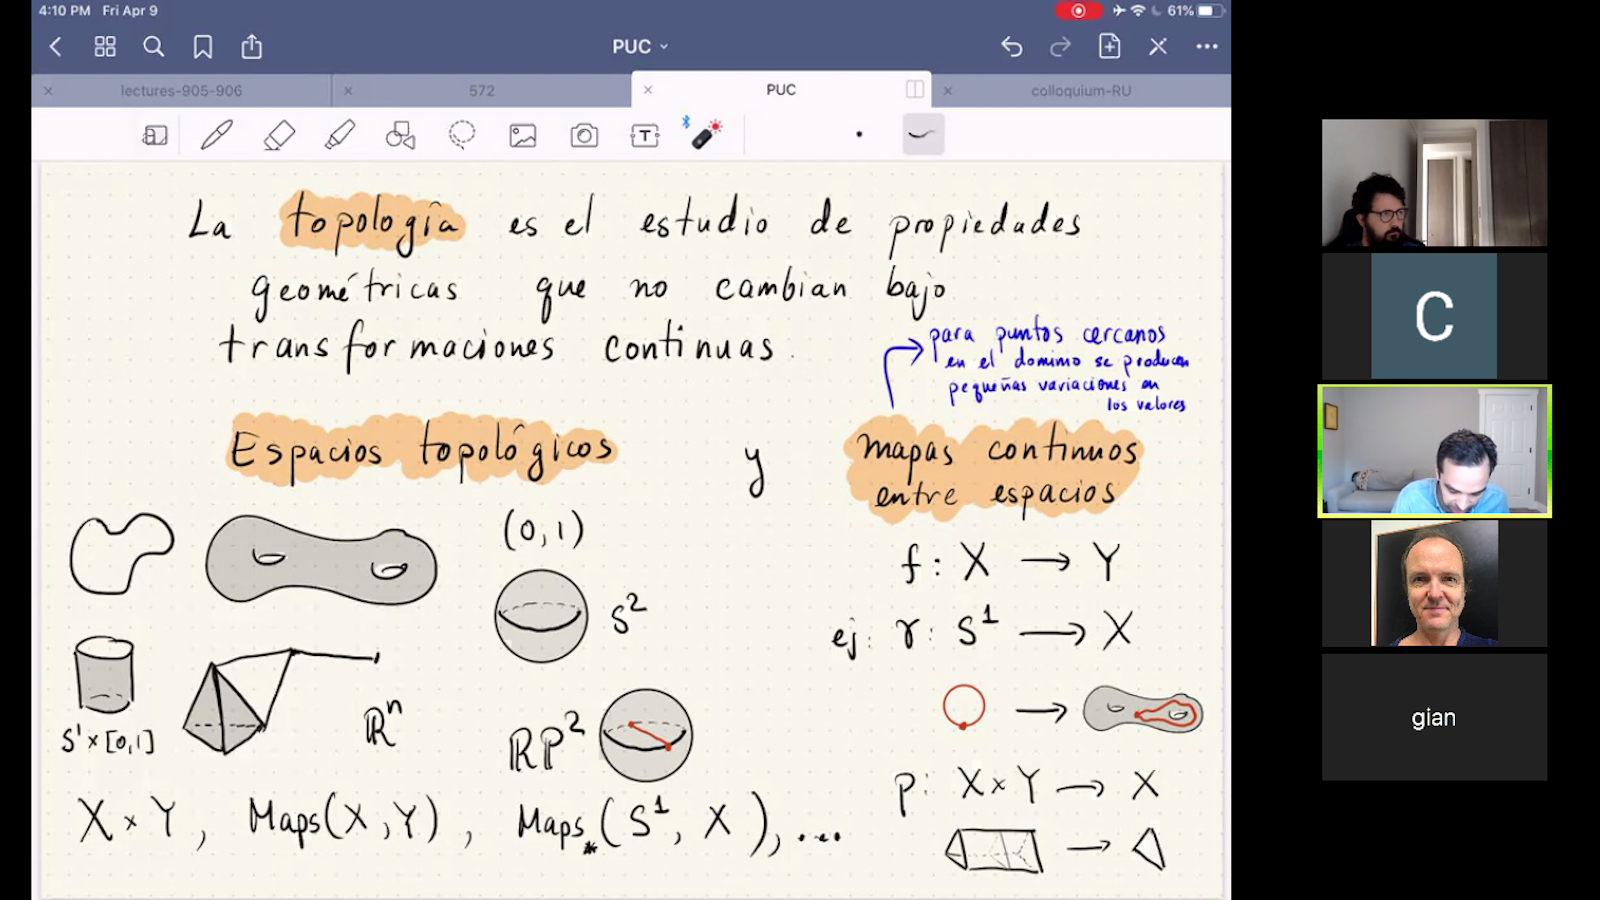 4:10 PM Fri Apr 9
61%
PUC
lectures-905-906
572
PUC
colloquium-RU
T
La topología es el estudio de propiedades
geométricas que no cambian bajo
transformaciones continuas.
para puntos cercanos
en el dominio se producen
pequeñas variaciones en
los valores
Espacios topológicos y mapas continuos
entre espacios
(0,1)
S²
S¹×[0,1]
ℝⁿ
ℝP²
X×Y, Maps(X,Y), Maps⁎(S¹, X), ...
f: X → Y
ej: γ: S¹ → X
p: X×Y → X
C
gian